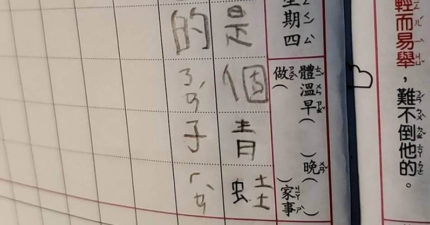 輕而易舉，難不倒他的。
星期四
體溫早（　）晚（　）
做（　）家事
是個青蛙
的
子